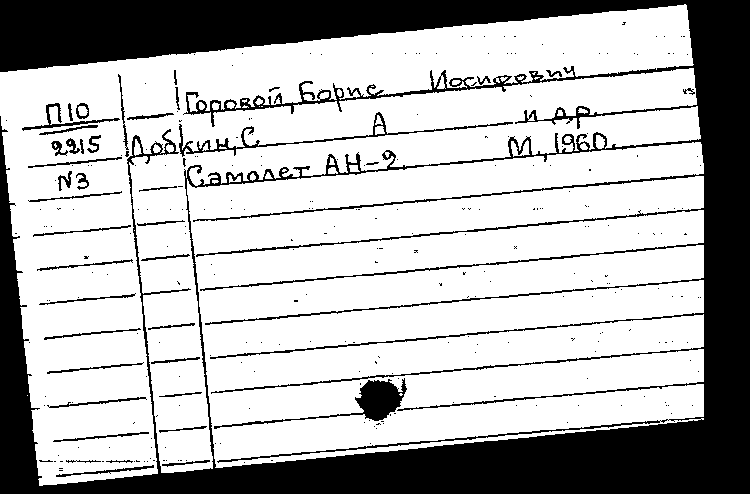 П10 Горовой, Борис Иосифович
2215 Добкин, С А и др.
N3 Самолет АН-2. М., 1960.